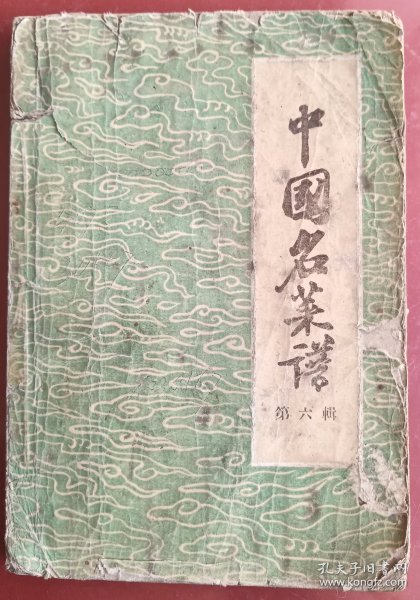 中國名菜谱
第六輯
孔夫子旧书网
www.kongfz.com